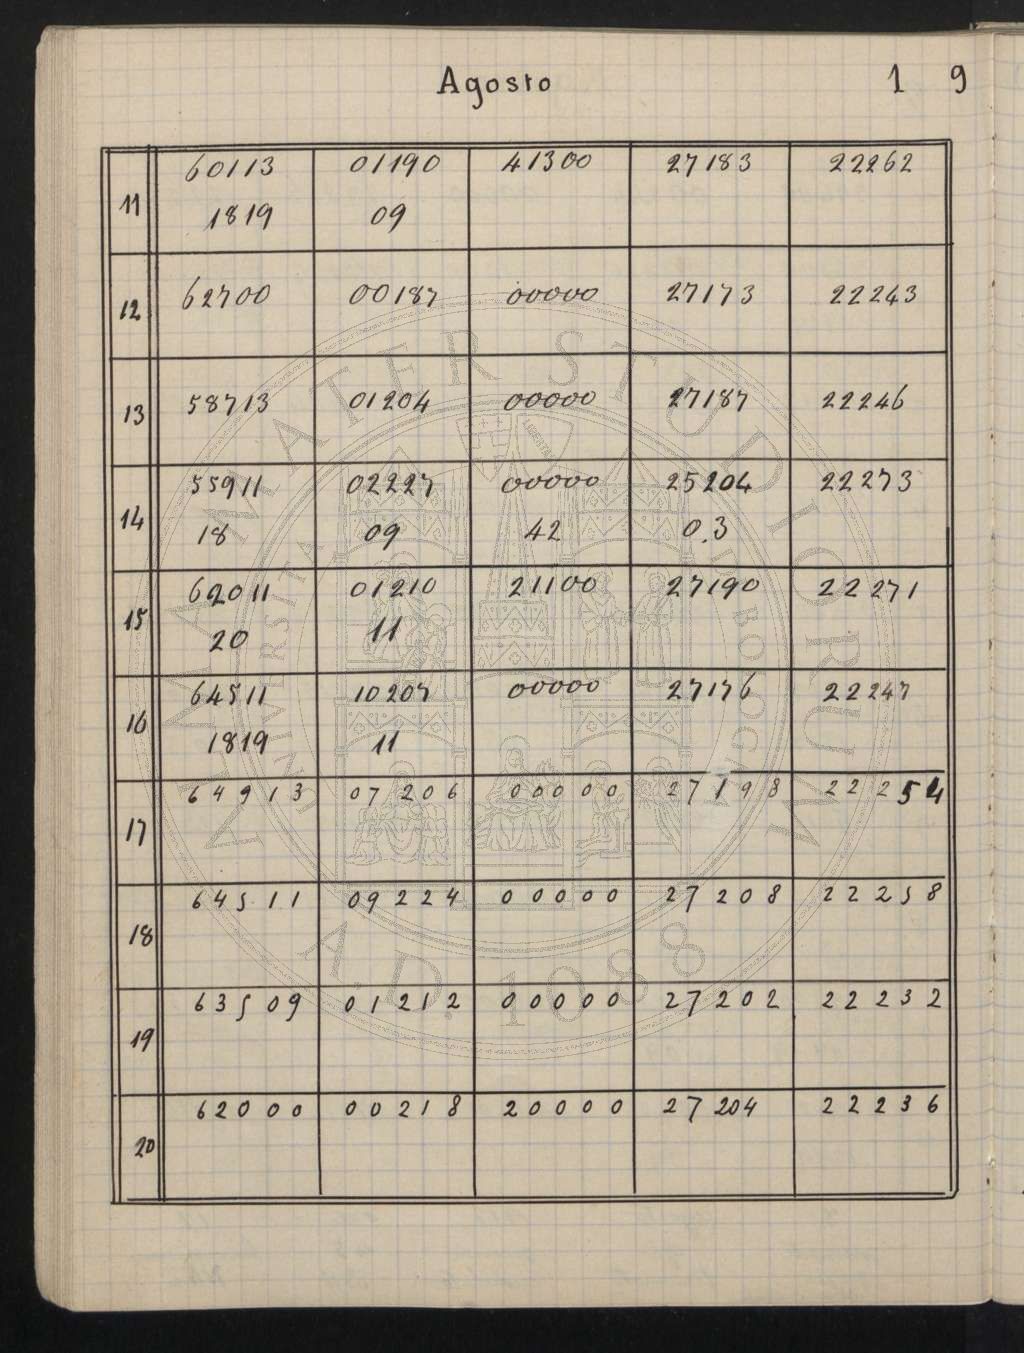 Agosto 1 9
11 60113 01190 41300 27183 22262
1819 09
12 62700 00187 00000 27173 22243
13 58713 01204 00000 27187 22246
14 55911 02227 00000 25204 22273
18 09 42 0.3
15 62011 01210 21100 27190 22271
20 11
16 64511 10207 00000 27176 22247
1819 11
17 64913 07206 00000 27198 22254
18 64511 09224 00000 27208 22258
19 63509 01212 00000 27202 22232
20 62000 00218 20000 27204 22236
ALMA MATER STUDIORUM
UNIVERSITÀ DI BOLOGNA
A.D. 1088